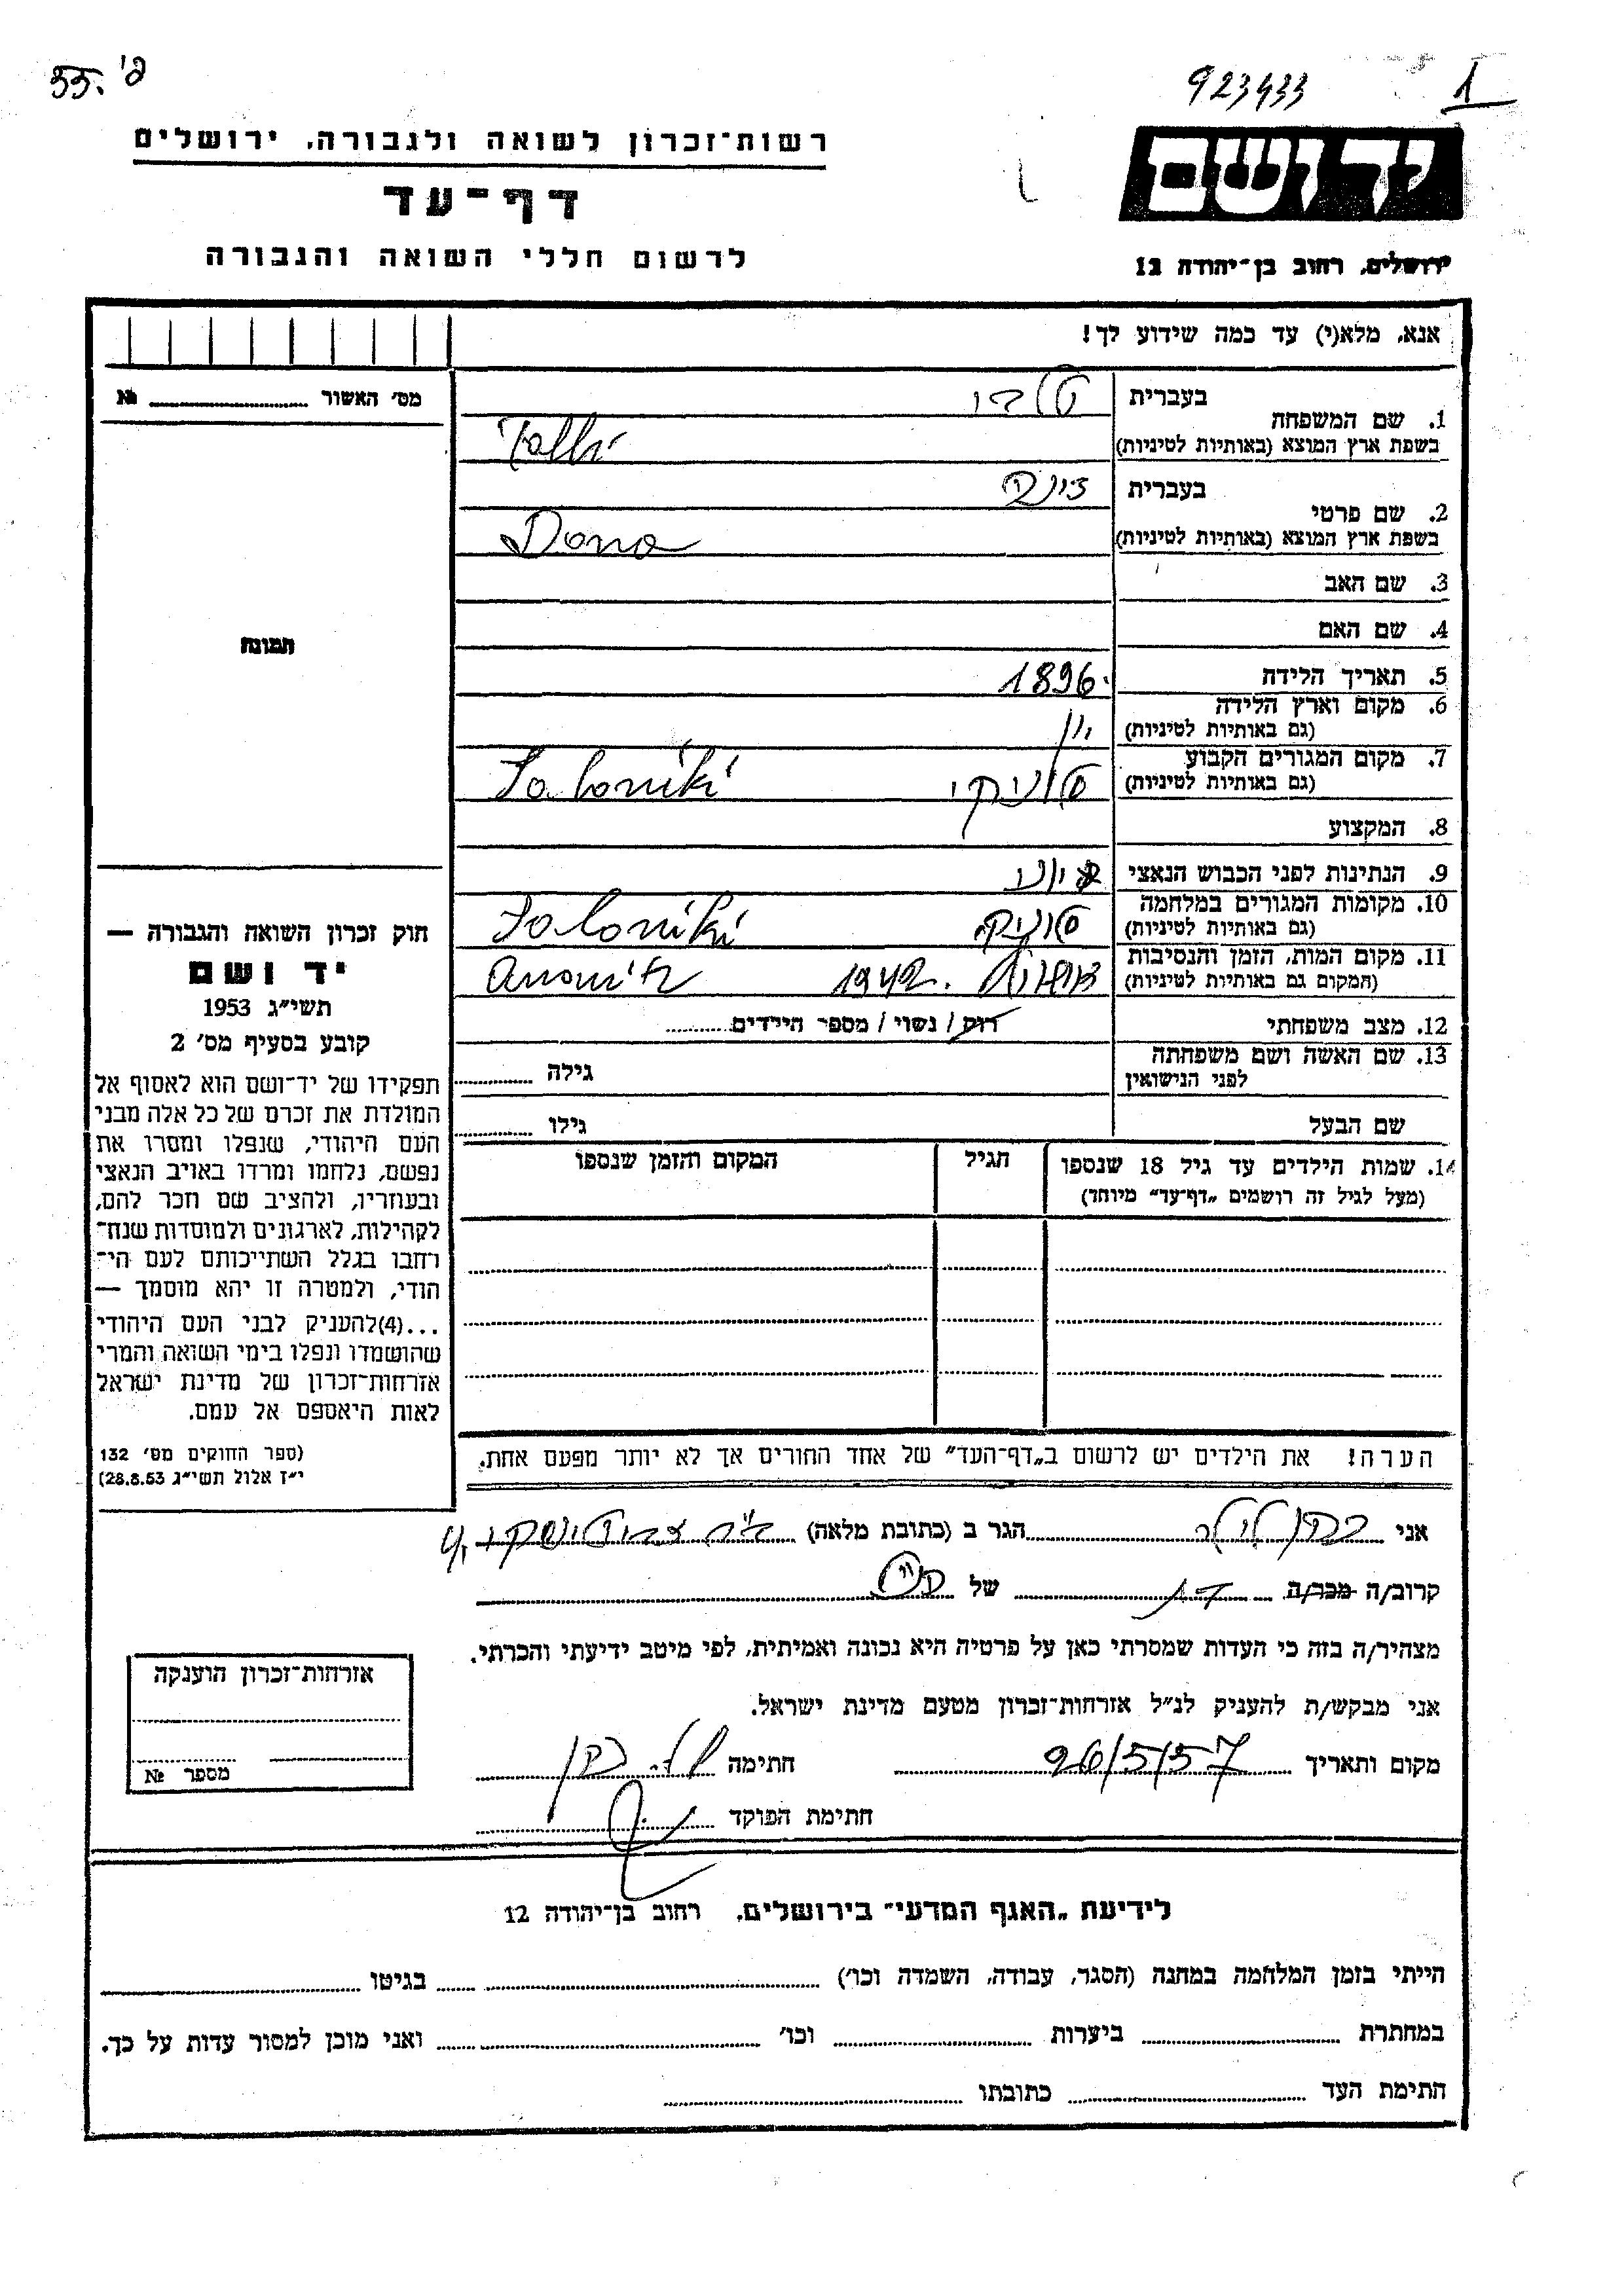 55. פ'
923433
1
רשות־זכרון לשואה ולגבורה, ירושלים
דף־עד
לרשום חללי השואה והגבורה
יד ושם
ירושלים, רחוב בן־יהודה 12
אנא, מלא(י) עד כמה שידוע לך!
מס' האשור №
1. שם המשפחה
בעברית
בשפת ארץ המוצא (באותיות לטיניות)
2. שם פרטי
בעברית דונה
בשפת ארץ המוצא (באותיות לטיניות) Dona
3. שם האב
4. שם האם
תמונה
5. תאריך הלידה 1896
6. מקום וארץ הלידה יון
(גם באותיות לטיניות)
7. מקום המגורים הקבוע
(גם באותיות לטיניות) סלוניקי Saloniki
8. המקצוע
9. הנתינות לפני הכבוש הנאצי
10. מקומות המגורים במלחמה
(גם באותיות לטיניות) סלוניקי Saloniki
11. מקום המות, הזמן והנסיבות
(המקום גם באותיות לטיניות) 1942.
12. מצב משפחתי רוק / נשוי / מספר הילדים
13. שם האשה ושם משפחתה
לפני הנישואין גילה
שם הבעל גילו
14. שמות הילדים עד גיל 18 שנספו
(מעל לגיל זה רושמים „דף־עד” מיוחד)
הגיל
המקום והזמן שנספו
הערה! את הילדים יש לרשום ב„דף־העד” של אחד החורים אך לא יותר מפעם אחת.
חוק זכרון השואה והגבורה —
יד ושם
תשי״ג 1953
קובע בסעיף מס' 2
תפקידו של יד־ושם הוא לאסוף אל
המולדת את זכרם של כל אלה מבני
העם היהודי, שנפלו ומסרו את
נפשם, נלחמו ומרדו באויב הנאצי
ובעוזריו, ולהציב שם וזכר להם,
לקהילות, לארגונים ולמוסדות שנח־
רחבו בגלל השתייכותם לעם הי־
הודי, ולמטרה זו יהא מוסמך —
...(4)להעניק לבני העם היהודי
שהושמדו ונפלו בימי השואה והמרי
אזרחות־זכרון של מדינת ישראל
לאות היאספם אל עמם.
(ספר החוקים מס' 132
י״ז אלול תשי״ג 28.8.53)
אני הגר ב (כתובת מלאה)
קרוב/ה מכר/ה של
מצהיר/ה בזה כי העדות שמסרתי כאן על פרטיה היא נכונה ואמיתית, לפי מיטב ידיעתי והכרתי.
אני מבקש/ת להעניק לנ״ל אזרחות־זכרון מטעם מדינת ישראל.
מקום ותאריך 26/5/57 חתימה
חתימת הפוקד
אזרחות־זכרון הוענקה
מספר №
לידיעת „האגף המדעי” בירושלים, רחוב בן־יהודה 12
הייתי בזמן המלחמה במחנה (הסגר, עבודה, השמדה וכו') בגיטו
במחתרת ביערות וכו' ואני מוכן למסור עדות על כך.
חתימת העד כתובתו